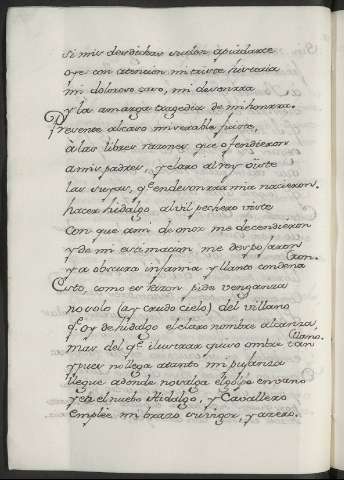 si mis desdichas suelen apiadarte
oye con atencion mi triste historia
mi doloroso caso, mi desonrra
y la amarga tragedia de mi honrra.
Presente al caso miserable fuiste,
à las libres razones que ofendieron
a mis padres, y claro al rey oiste
las suyas, q.e en desonrra mia nacieron.
hacer hidalgo al vil pechero viste
con que a mi de onor me decendieron
y de mi estimacion me desposaron
y a obscura infamia y llanto condenaron.
Esto, como es razon pide venganza
no solo (ay crudo cielo) del villano
q.e oy de hidalgo el claro nombre alcanza,
mas del q.e ilustrar quiso ombre tan llano.
y pues no llega a tanto mi pujanza
llegue adonde no valga el golpe en vano
y en el nuebo Hidalgo, y Cavallero
emplée mi brazo su vigor, y azero.